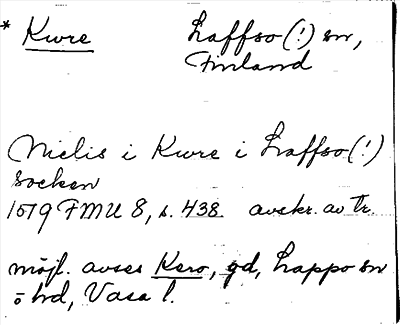 * Kure Laffso(!) sn,
Finland
Nielis i Kure i Laffso(!)
socken
1519 FMU 8, s. 438. avskr. av tr.
möjl. avses Kero, gd, Lappo sn
ö hd, Vasa l.